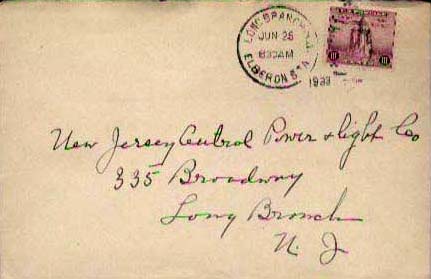 LONG BRANCH, N.J.
JUN 26
8 30 AM
1933
ELBERON STA.
III III
New Jersey Central Power & Light Co
335 Broadway
Long Branch
N. J